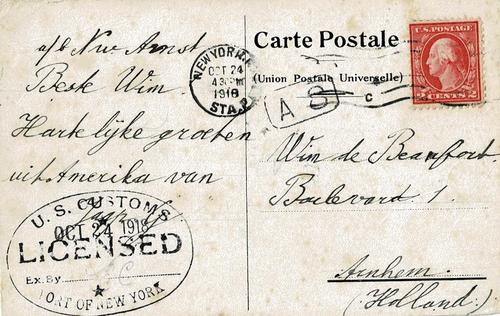 a/b Nw Amst
Beste Wim.
Hartelijke groeten
uit Amerika van
Jaap
U.S. CUSTOMS
OCT 24 1918
LICENSED
Ex. By
PORT OF NEW YORK
NEW YORK, N.Y.
OCT 24
430PM
1918
STA. P
Carte Postale
(Union Postale Universelle)
A S
C
U.S. POSTAGE
2 CENTS 2
Wim de Beaufort.
Boulevard 1.
Arnhem.
(Holland.)